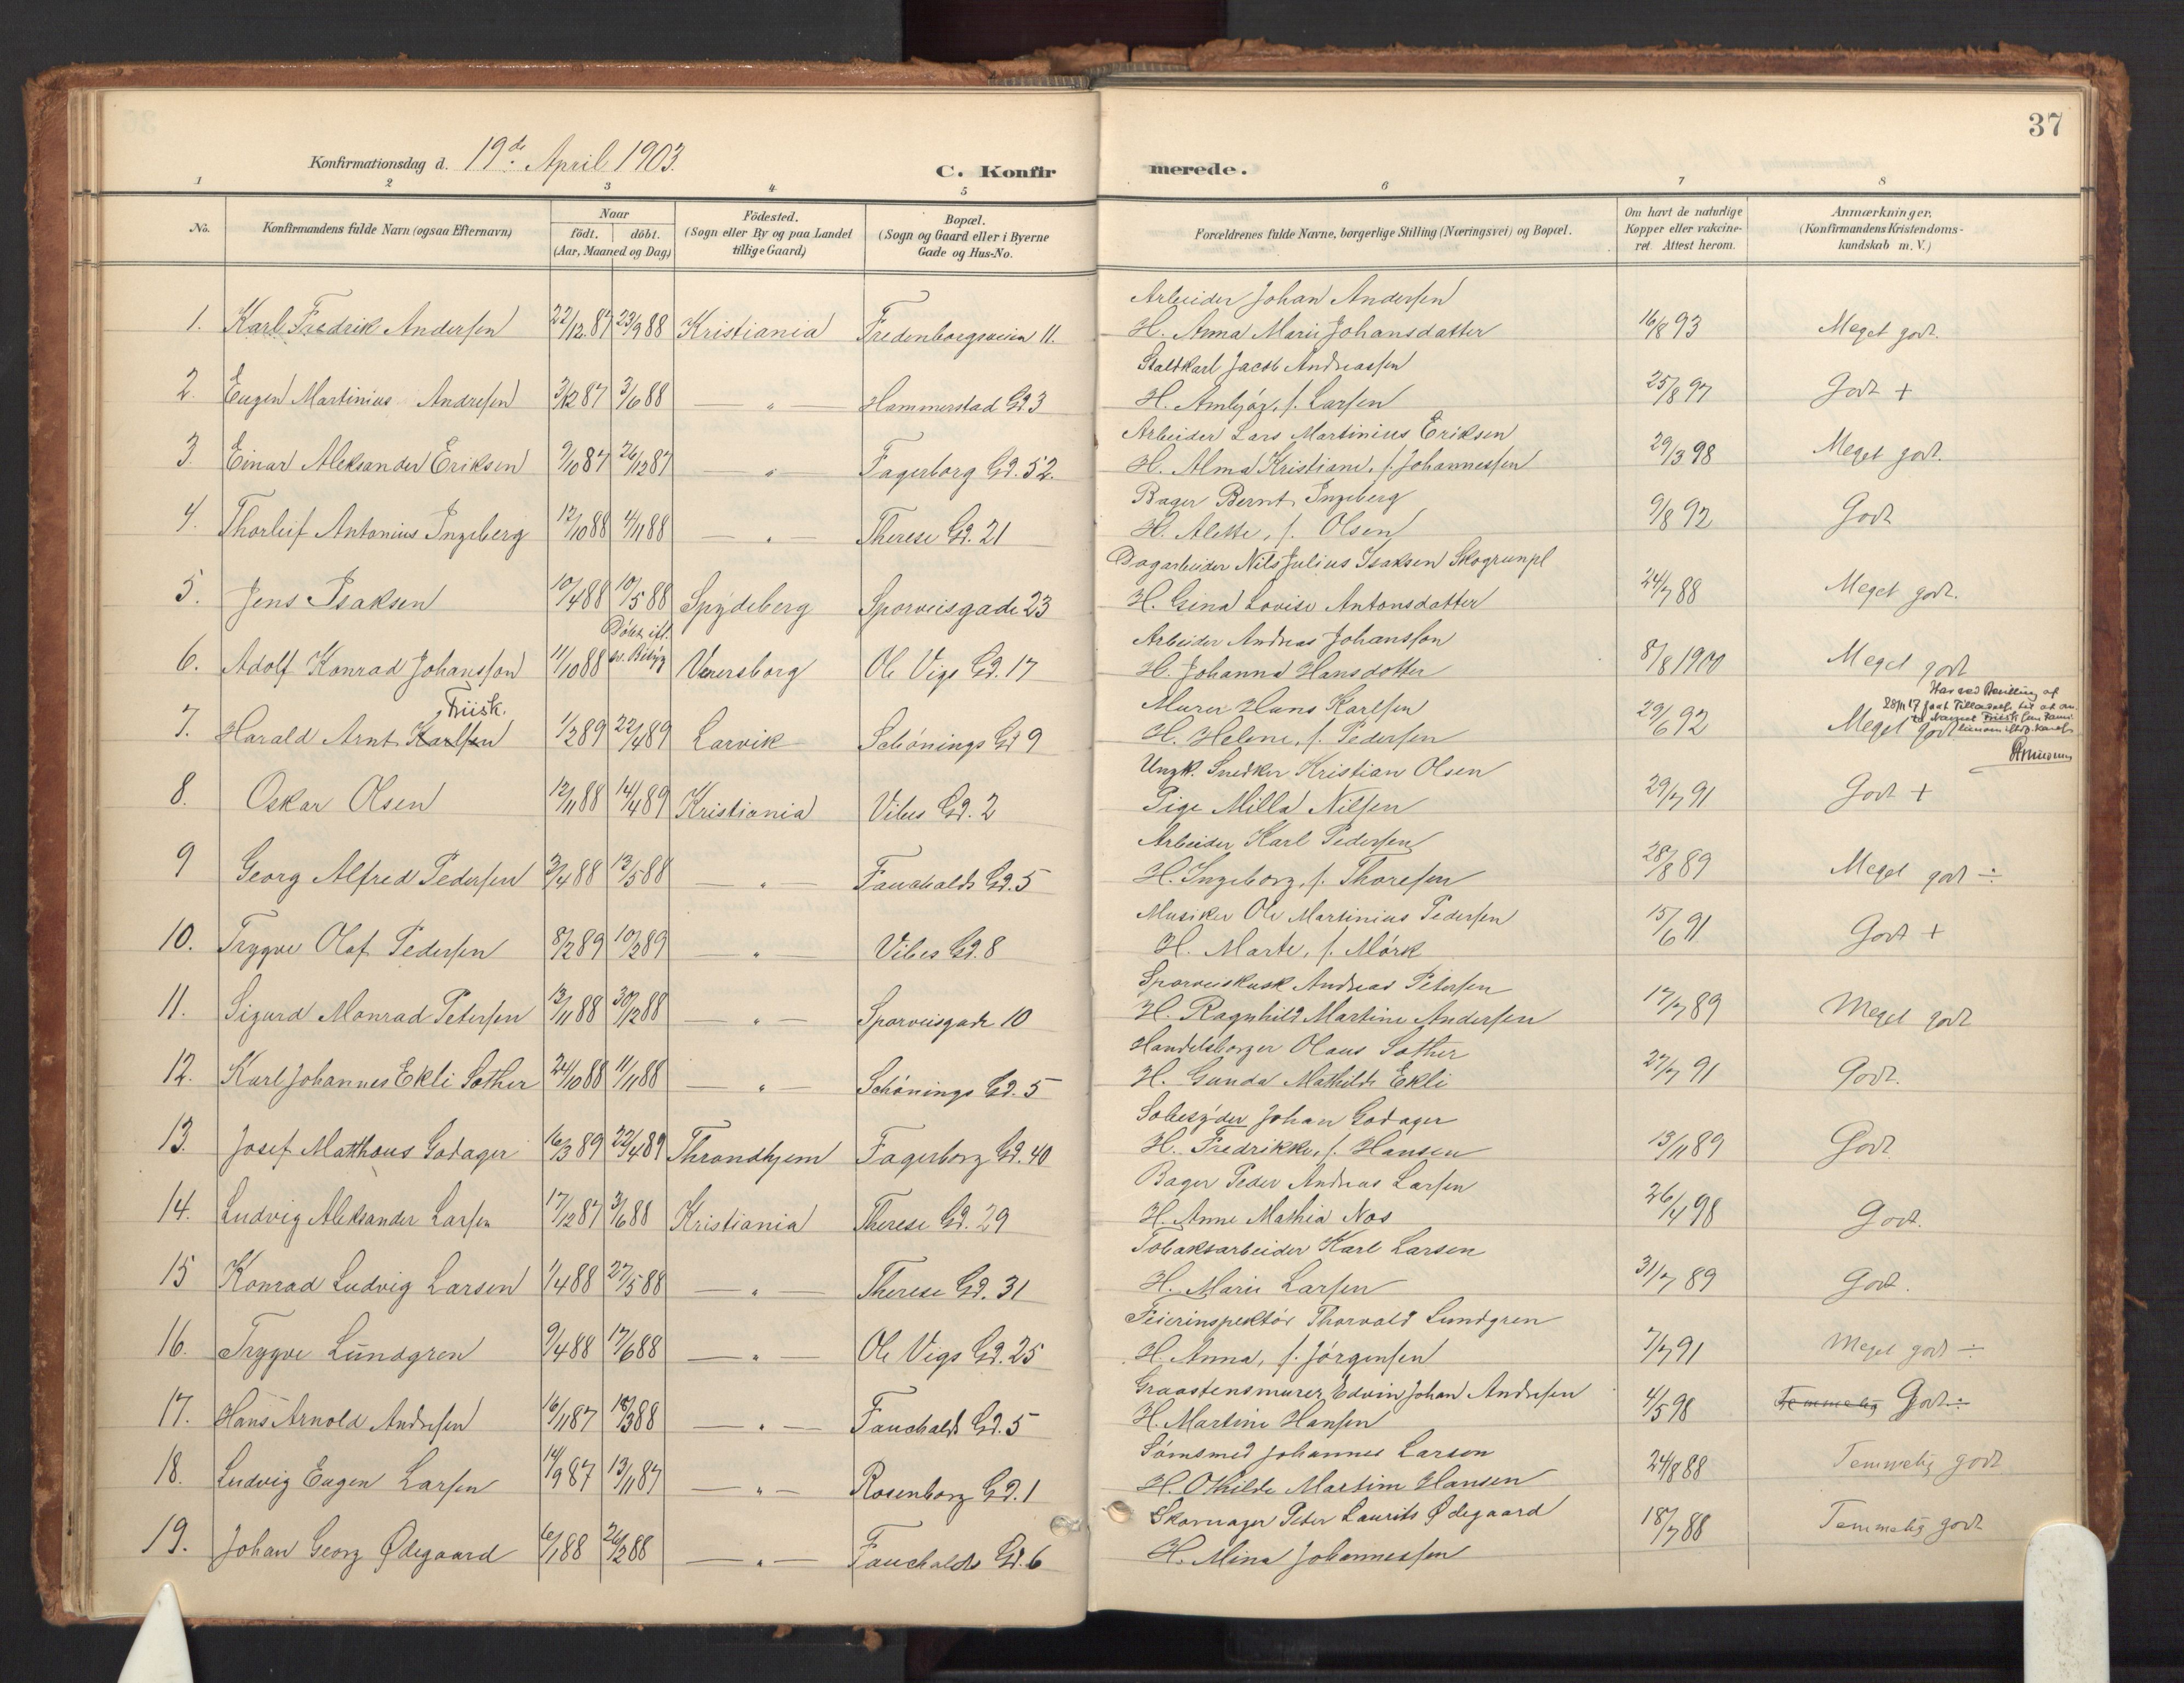 37
Konfirmationsdag d. 19de April 1903.
C. Konfirmerede.
1 2 3 4 5 6 7 8
No. Konfirmandens fulde Navn (ogsaa Efternavn) Naar födt. döbt. (Aar, Maaned og Dag) Födested. (Sogn eller By og paa Landet tillige Gaard) Bopæl. (Sogn og Gaard eller i Byerne Gade og Hus-No. Forældrenes fulde Navne, borgerlige Stilling (Næringsvei) og Bopæl. Om havt de naturlige Kopper eller vakcineret. Attest herom. Anmærkninger. (Konfirmandens Kristendomskundskab m. V.)
Arbeider Johan Andersen
1. Karl Fredrik Andersen 22/12.87 23/9 88 Kristiania Fredenborgsveien 11. H. Anna Marie Johansdatter 16/8 93 Meget godt.
Staldkarl Jacob Andreassen
2. Eugen Martinius Andresen 3/12 87 3/6 88 — " — Hammerstad Gd. 3 H. Ambjög, f. Larsen 25/8 97 Godt +
Arbeider Lars Martinius Eriksen
3. Einar Aleksander Eriksen 9/10 87 26/12 87 — " — Fagerborg Gd. 52. H. Alma Kristiane, f. Johannessen 29/3 98 Meget godt.
Bager Bernt Ingeberg
4. Thorleif Antonius Ingeberg 12/10 88 4/11 88 — " — Therese Gd. 21 H. Alette, f. Olsen 9/8 92 Godt
Dagarbeider Nils Julius Isaksen Skogrunpl
5. Jens Isaksen 10/4 88 10/5 88 Spydeberg Sporveisgade 23 H. Gina Lovise Antonsdatter 24/7 88 Meget godt.
Döbt ifl. Arbeider Andreas Johansson
6. Adolf Konrad Johansson 11/10 88 Venersborg Ole Vigs Gd. 17 H. Johanna Hansdotter 8/8 1900 Meget godt
Friisk. Murer Hans Karlsen Har ved Bevilling af 28/11 17 faat Tilladelse til at an. Navnet Friisk
7. Harald Arnt Karlsen 1/2 89 22/4 89 Larvik Schönings Gd 9 H. Helene, f. Pedersen 29/6 92 Meget godt
Ungk. Snedker Kristian Olsen
8. Oskar Olsen 12/11 88 14/4 89 Kristiania Vibes Gd. 2 Pige Milla Nilsen 29/7 91 Godt +
Arbeider Karl Pedersen
9 Georg Alfred Pedersen 3/4 88 13/5 88 — " — Fauchalds Gd. 5 H. Ingeborg, f. Thoresen 28/8 89 Meget godt ÷
Musiker Ole Martinius Pedersen
10. Trygve Olaf Pedersen 8/2 89 10/2 89 — " — Vibes Gd. 8 H. Marte, f. Mörk 15/6 91 Godt +
Sporveiskusk Andreas Petersen
11. Sigurd Monrad Petersen 13/11 88 30/12 88 — " — Sporveisgade 10 H. Ragnhild Martine Andersen 17/7 89 Meget godt
Handelsborger Olaus Sother
12. Karl Johannes Ekli Sother 24/10 88 11/11 88 — " — Schönings Gd. 5 H. Gunda Mathilde Ekli 27/7 91 Godt.
Sæbesyder Johan Godager
13. Josef Matthæus Godager 16/3 89 22/4 89 Throndhjem Fagerborg Gd. 40 H. Fredrikke, f. Hansen 13/11 89 Godt
Bager Peder Andreas Larsen
14. Ludvig Aleksander Larsen 17/12 87 3/6 88 Kristiania Therese Gd. 29 H. Anne Mathia Nos 26/4 98 Godt.
Tobaksarbeider Karl Larsen
15 Konrad Ludvig Larsen 1/4 88 27/5 88 — " — Therese Gd. 31 H. Marie Larsen 31/7 89 Godt.
Feierinspektör Thorvald Lundgren
16. Trygve Lundgren 9/4 88 17/6 88 — " — Ole Vigs Gd. 25 H. Anna, f. Jörgensen 7/7 91 Meget godt ÷
Graastensmurer Edvin Johan Andresen
17. Hans Arnold Andresen 16/11 87 18/3 88 — " — Fauchalds Gd. 5 H. Martine Hansen 4/5 98 Temmelig Godt ÷
Sömsmed Johannes Larsen
18. Ludvig Eugen Larsen 14/9 87 13/11 87 — " — Rosenborg Gd. 1 H. Othilde Martine Hansen 24/8 88 Temmelig godt
Skomager Peter Laurits Ødegaard
19. Johan Georg Ødegaard 6/1 88 26/2 88 — " — Fauchalds Gd. 6 H. Mina Johannessen 18/7 88 Temmelig godt